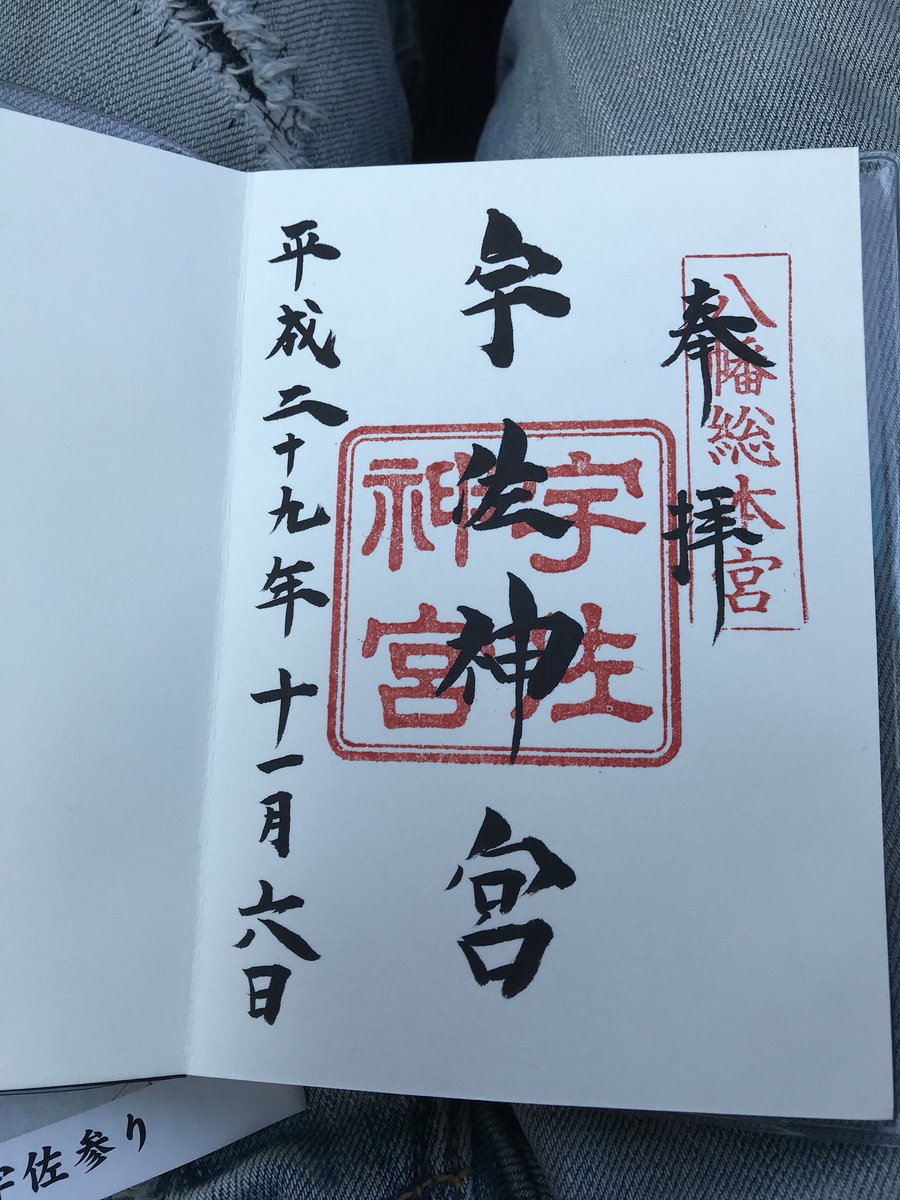 八幡総本宮
奉拝
宇佐神宮
宇佐
神宮
平成二十九年十一月六日
宇佐参り